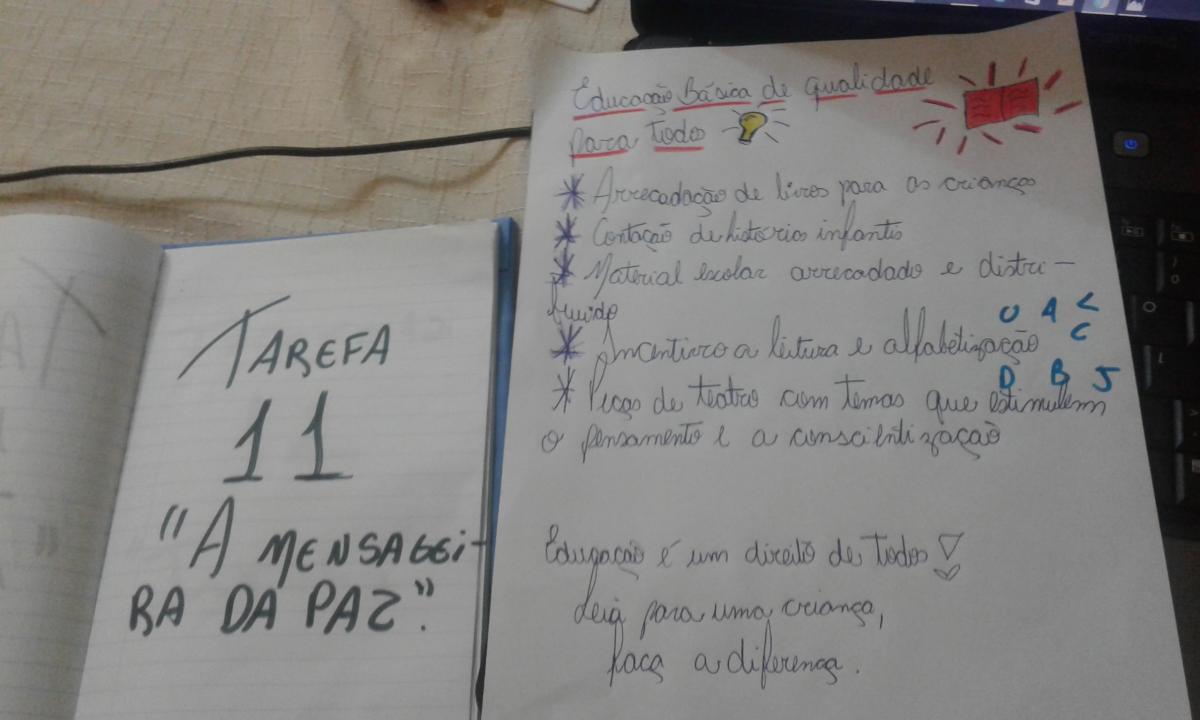 TAREFA
11
"A MENSAGEI-
RA DA PAZ".
Educação Básica de qualidade
para todos
* Arrecadação de livros para as crianças
* Contação de histórias infantis
* Material escolar arrecadado e distri-
buido
* Incentivo a leitura e alfabetização
* Peças de teatro com temas que estimulem
o pensamento e a conscientização
U A L
C
D B J
Educação é um direito de todos!
Leia para uma criança,
faça a diferença.